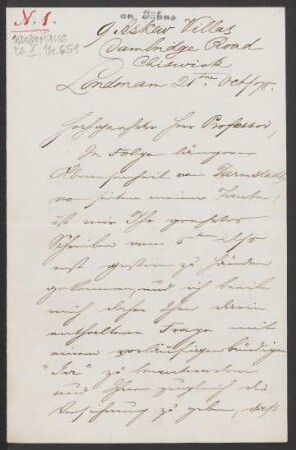 N. 1.
an Dühns
9. Askew Villas
Cambridge Road
Chiswick
London am 21ten Oct/78.
Hochgeehrter Herr Professor,
In Folge längerer
Abwesenheit von Darmstadt,
wo seitens meiner
ist mir Ihr geehrtes
Schreiben vom 5ten d/s
erst gestern zu Händen
gekommen, und ich beeile
mich daher Ihre darin
enthaltene Frage mit
einem vorläufigen bündigen
"Ja" zu beantworten
und Ihnen zugleich die
Versicherung zu geben, daß